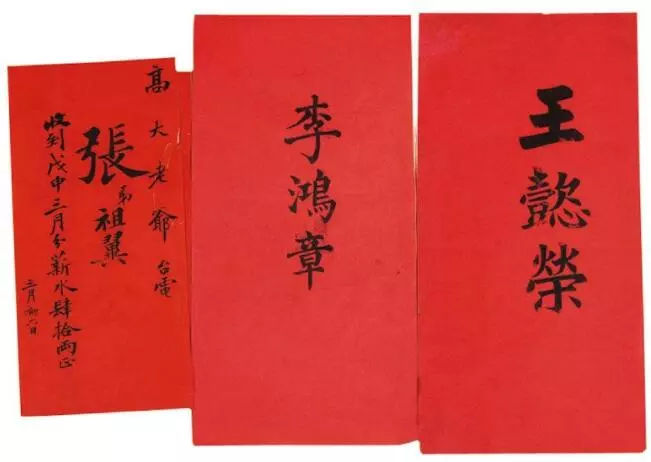 王懿榮
李鴻章
高大老爺台電
張弟祖翼
收到戊申三月分薪水肆拾兩正
三月初六日